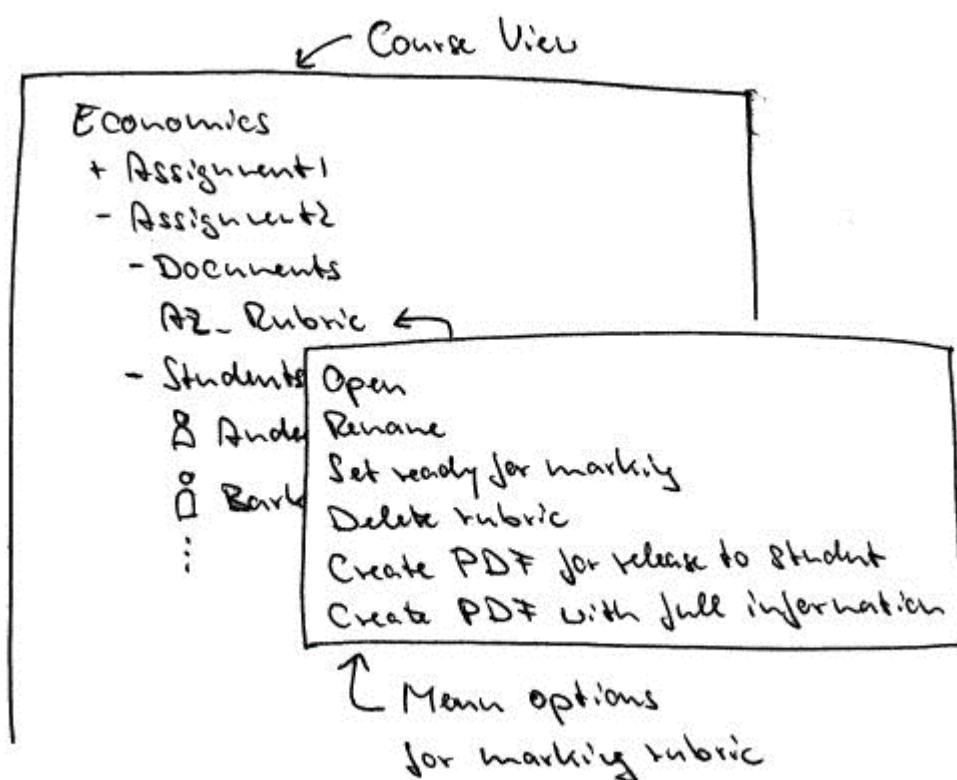 Course View
Economics
+ Assignment1
- Assignment2
- Documents
A2_Rubric
- Students
Ande
Bark
⋮
Open
Rename
Set ready for marking
Delete rubric
Create PDF for release to student
Create PDF with full information
Menu options
for marking rubric